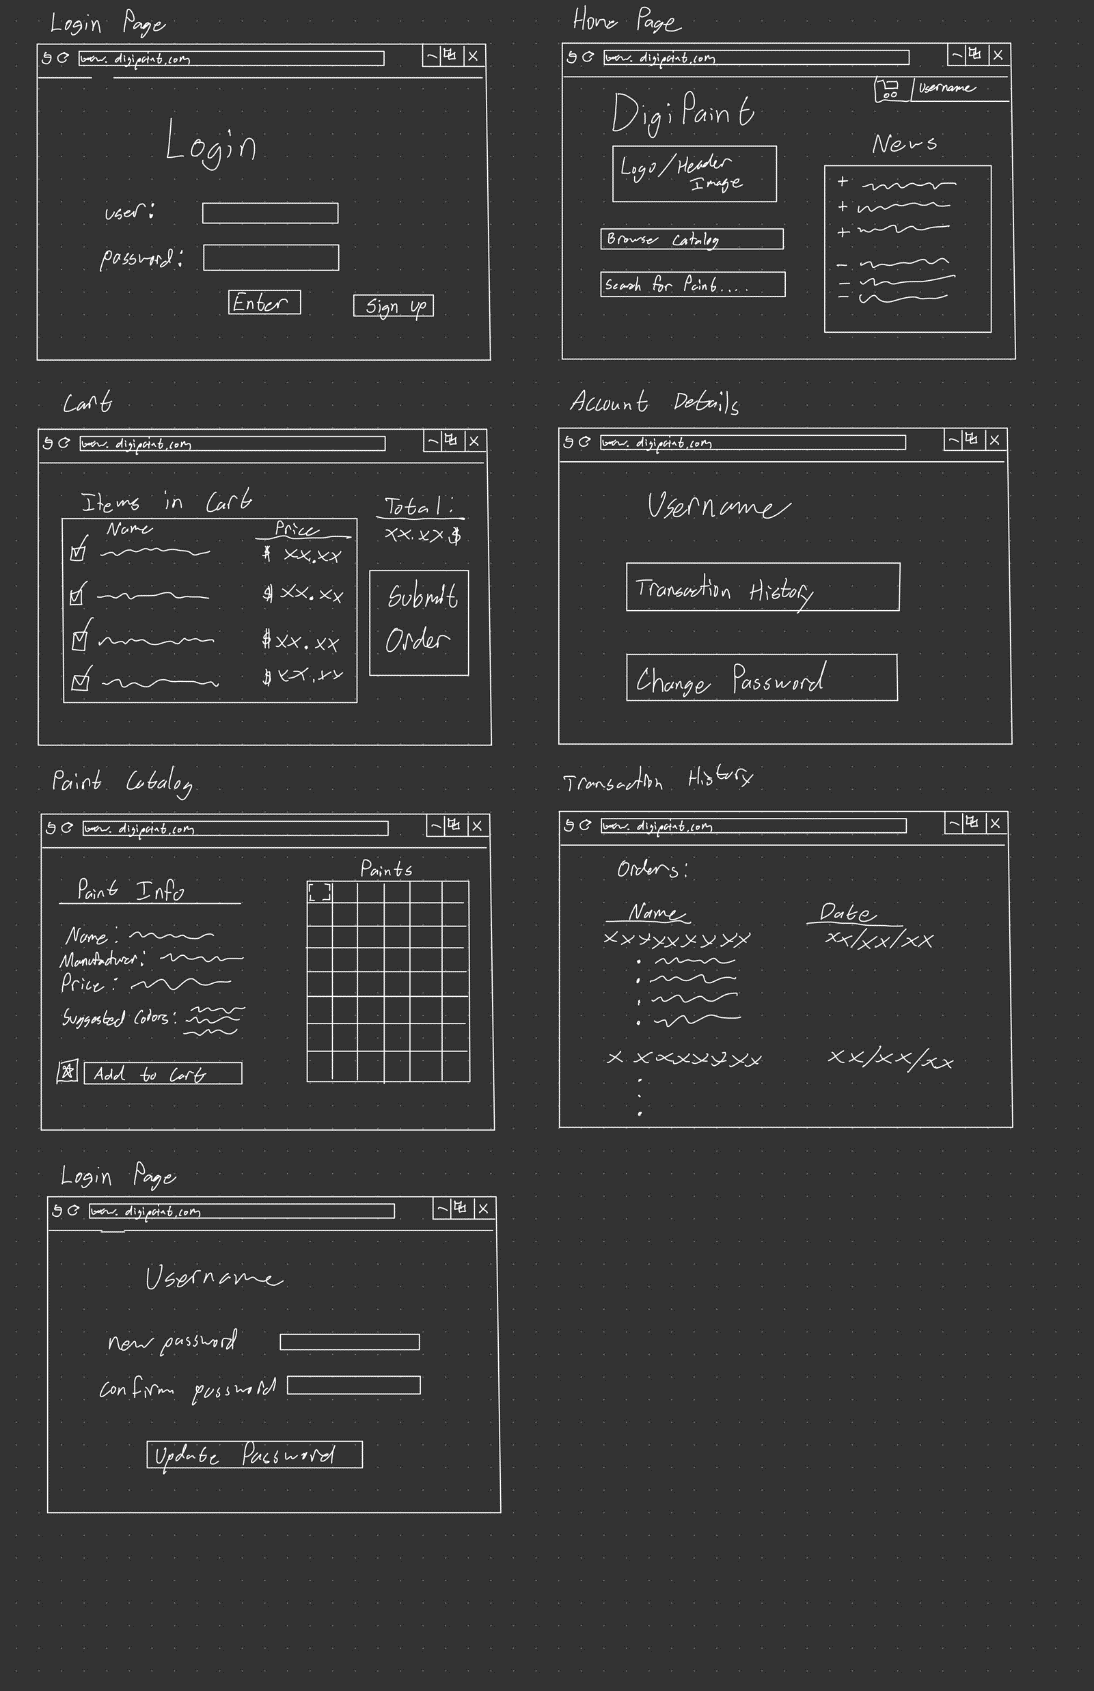 Login Page
www.digipaint.com
Login
user:
password:
Enter
Sign up
Home Page
www.digipaint.com
Username
DigiPaint
Logo/Header
Image
Browse Catalog
Search for Paint....
News
+
+
+
-
-
-
Cart
www.digipaint.com
Items in Cart
Name Price
$ xx.xx
$ xx.xx
$ xx.xx
$ xx.xx
Total:
xx.xx$
Submit
Order
Account Details
www.digipaint.com
Username
Transaction History
Change Password
Paint Catalog
www.digipaint.com
Paint Info
Name:
Manufacturer:
Price:
Suggested Colors:
Add to Cart
Paints
Transaction History
www.digipaint.com
Orders:
Name Date
xxxxxxxxx xx/xx/xx
x xxxxxxx xx/xx/xx
Login Page
www.digipaint.com
Username
new password
confirm password
Update Password